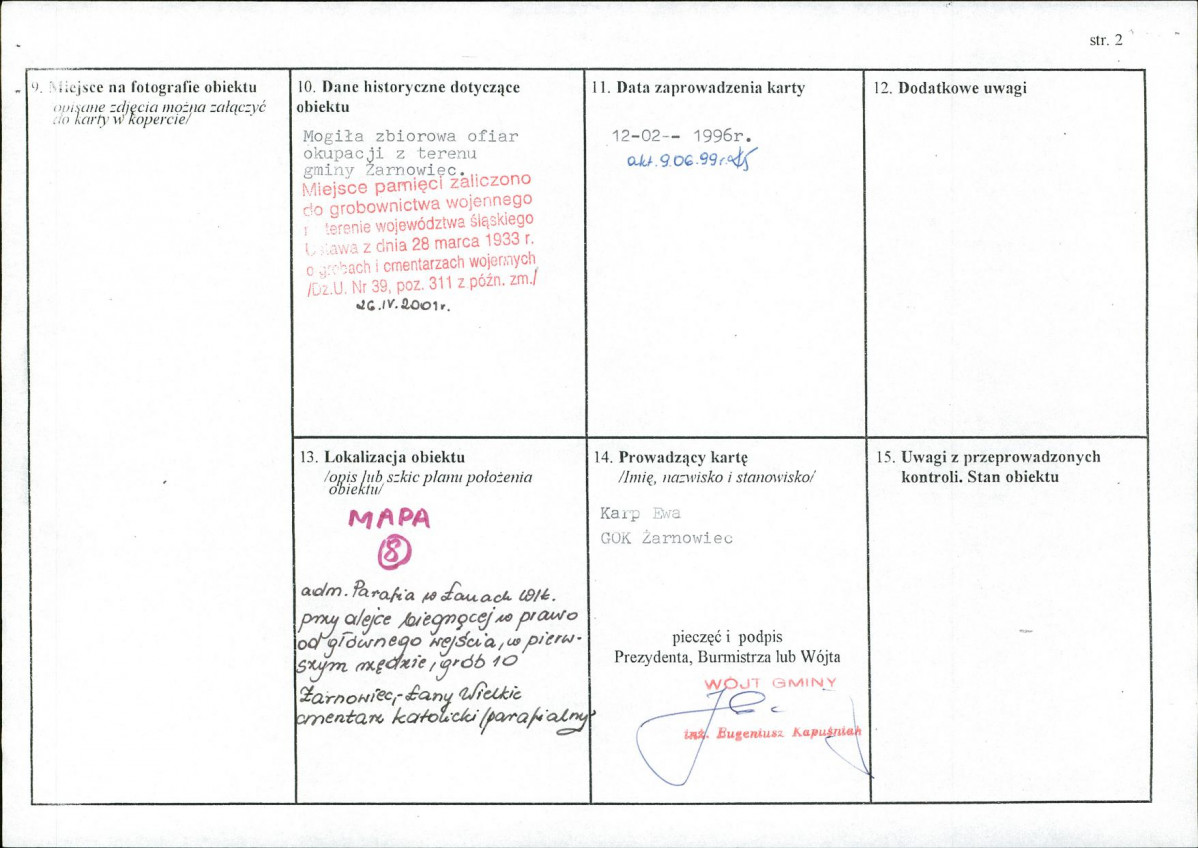 str. 2
9. Miejsce na fotografie obiektu
opisane zdjęcia można załączyć
do karty w kopercie/
10. Dane historyczne dotyczące
obiektu
Mogiła zbiorowa ofiar
okupacji z terenu
gminy Żarnowiec.
Miejsce pamięci zaliczono
do grobownictwa wojennego
terenie województwa śląskiego
Ustawa z dnia 28 marca 1933 r.
o grobach i cmentarzach wojennych
/Dz.U. Nr 39, poz. 311 z późn. zm./
26.IV.2001r.
11. Data zaprowadzenia karty
12-02-- 1996r.
akt. 9.06.99r.
12. Dodatkowe uwagi
13. Lokalizacja obiektu
/opis lub szkic planu położenia
obiektu/
MAPA
8
adm. Parafia w Łanach Wlk.
przy alejce biegnącej w prawo
od głównego wejścia, w pierw-
szym rzędzie, grób 10
Żarnowiec,- Łany Wielkie
cmentarz katolicki /parafialny/
14. Prowadzący kartę
/Imię, nazwisko i stanowisko/
Karp Ewa
GOK Żarnowiec
pieczęć i podpis
Prezydenta, Burmistrza lub Wójta
WÓJT GMINY
inż. Eugeniusz Kapuśniak
15. Uwagi z przeprowadzonych
kontroli. Stan obiektu